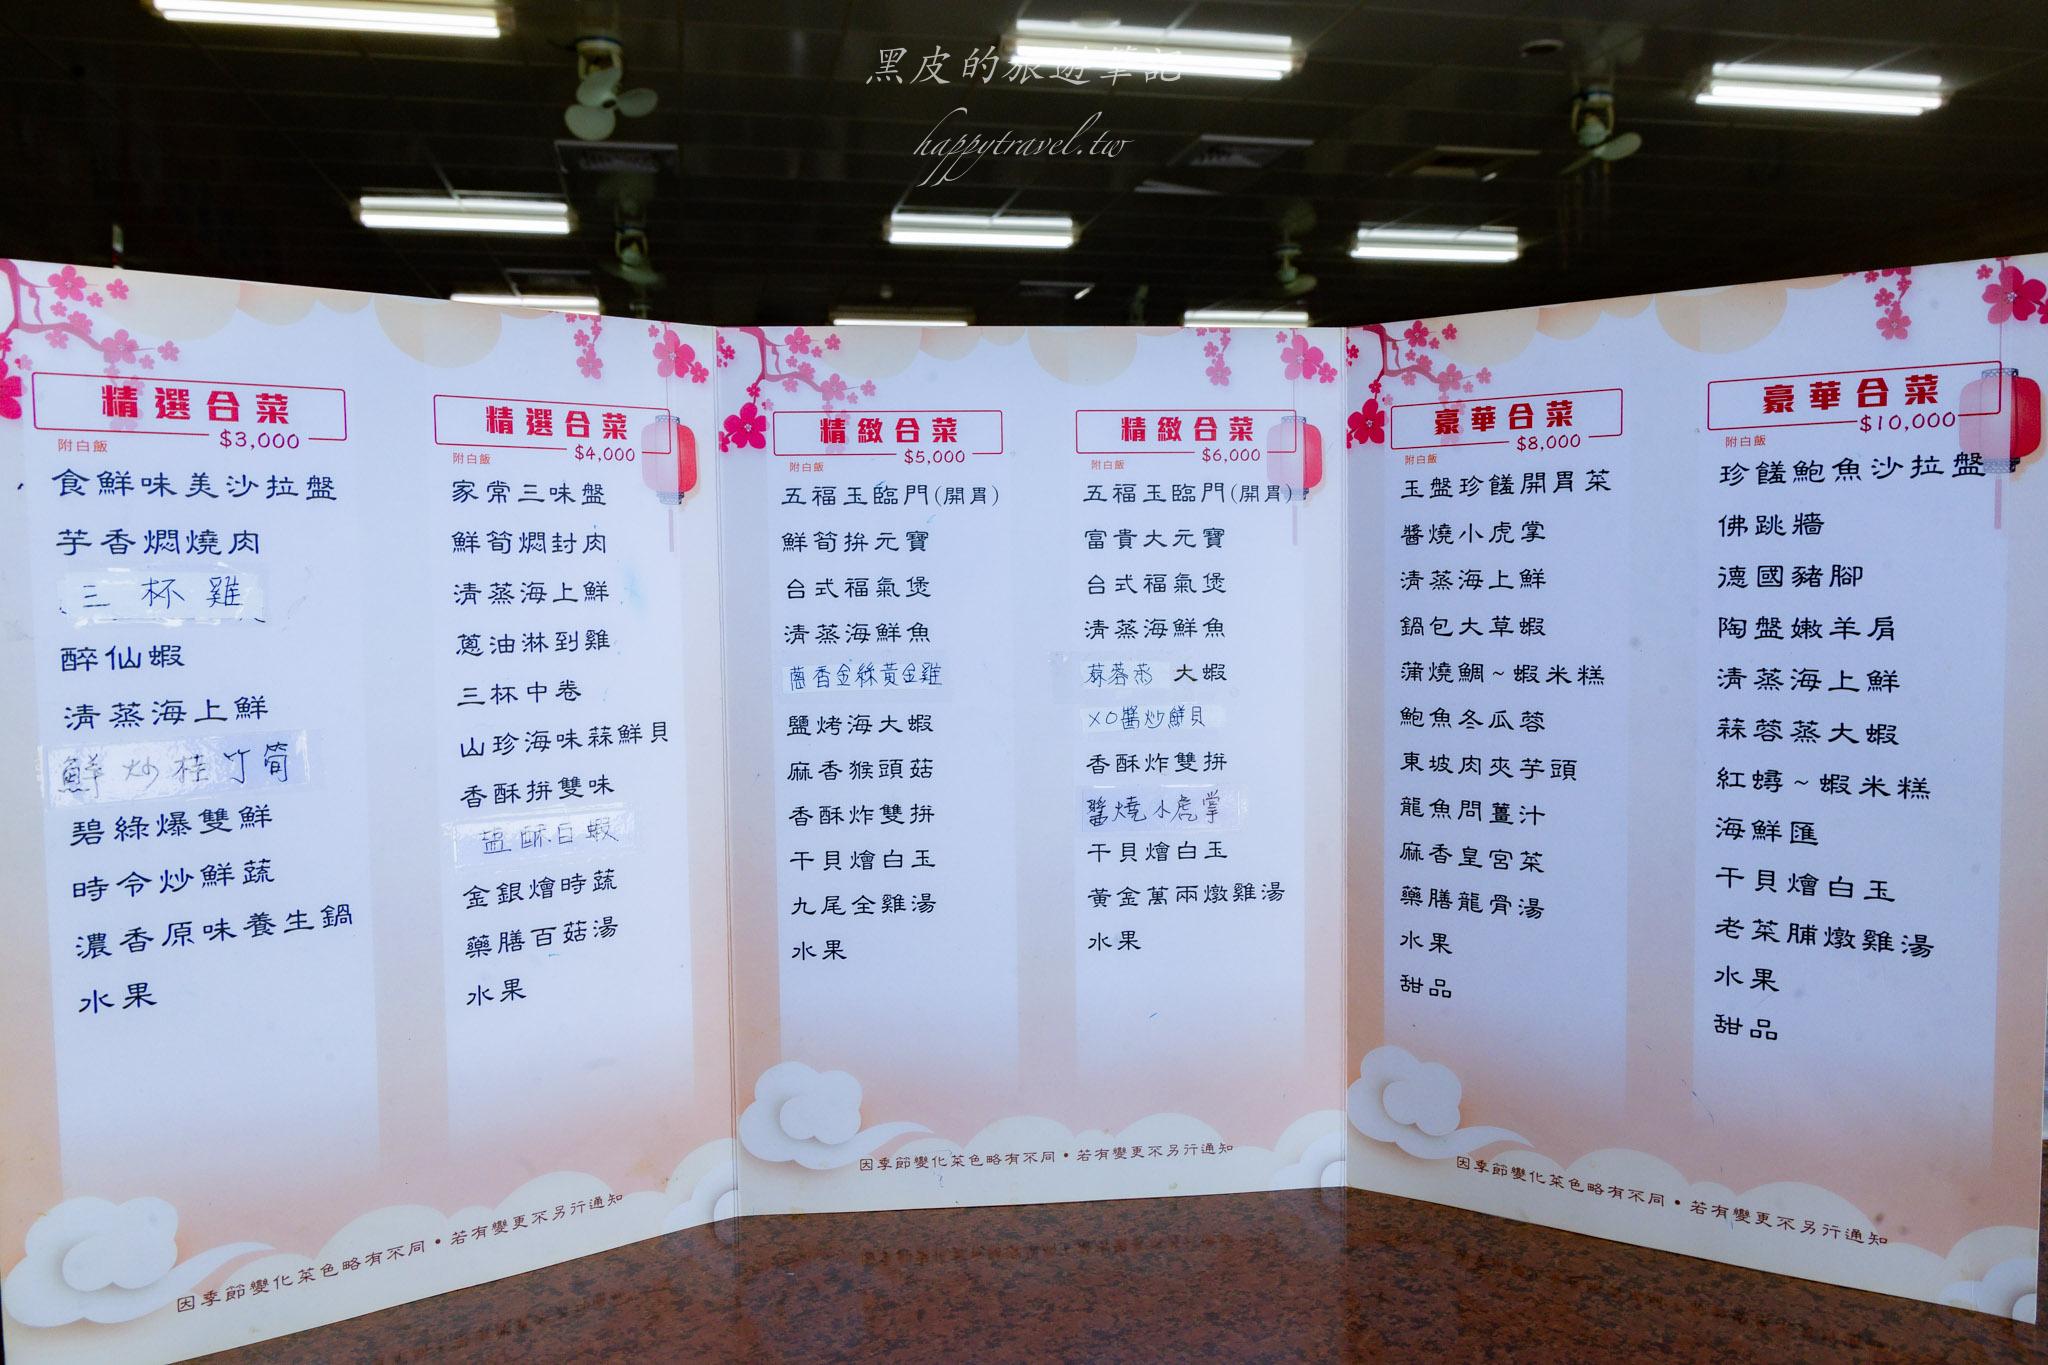 黑皮的旅遊筆記
happytravel.tw
精選合菜
$3,000
附白飯
食鮮味美沙拉盤
芋香燜燒肉
三杯雞
醉仙蝦
清蒸海上鮮
鮮炒桂竹筍
碧綠爆雙鮮
時令炒鮮蔬
濃香原味養生鍋
水果
精選合菜
$4,000
附白飯
家常三味盤
鮮筍燜封肉
清蒸海上鮮
蔥油淋到雞
三杯中卷
山珍海味蒜鮮貝
香酥拼雙味
盐酥白蝦
金銀燴時蔬
藥膳百菇湯
水果
因季節變化菜色略有不同・若有變更不另行通知
精緻合菜
$5,000
附白飯
五福玉臨門(開胃)
鮮筍拚元寶
台式福氣煲
清蒸海鮮魚
蔥香金絲黃金雞
鹽烤海大蝦
麻香猴頭菇
香酥炸雙拼
干貝燴白玉
九尾全雞湯
水果
精緻合菜
$6,000
附白飯
五福玉臨門(開胃)
富貴大元寶
台式福氣煲
清蒸海鮮魚
蒜蓉蒸大蝦
XO醬炒鮮貝
香酥炸雙拼
醬燒小虎掌
干貝燴白玉
黃金萬兩燉雞湯
水果
因季節變化菜色略有不同・若有變更不另行通知
豪華合菜
$8,000
附白飯
玉盤珍饈開胃菜
醬燒小虎掌
清蒸海上鮮
鍋包大草蝦
蒲燒鯛~蝦米糕
鮑魚冬瓜蓉
東坡肉夾芋頭
龍魚問薑汁
麻香皇宮菜
藥膳龍骨湯
水果
甜品
豪華合菜
$10,000
附白飯
珍饈鮑魚沙拉盤
佛跳牆
德國豬腳
陶盤嫩羊肩
清蒸海上鮮
蒜蓉蒸大蝦
紅蟳~蝦米糕
海鮮匯
干貝燴白玉
老菜脯燉雞湯
水果
甜品
因季節變化菜色略有不同・若有變更不另行通知